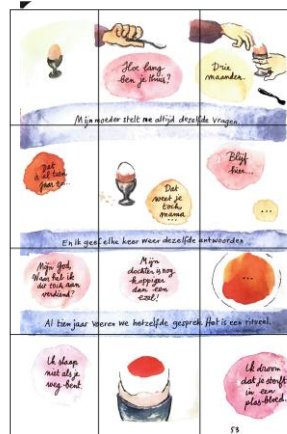 Hoe lang
ben je thuis?
Drie
maanden.
Mijn moeder stelt me altijd dezelfde vragen.
Dat
is al tien
jaar zo...
Dat
weet je
toch,
mama...
Blijf
hier...
...
En ik geef elke keer weer dezelfde antwoorden.
Mijn God,
Waar heb ik
dit toch aan
verdiend?
Mijn
dochter is nog
koppiger
dan een
ezel!
...
Al tien jaar voeren we hetzelfde gesprek. Het is een ritueel.
Ik slaap
niet als je
weg bent.
Ik droom
dat je sterft
in een
plas bloed.
53